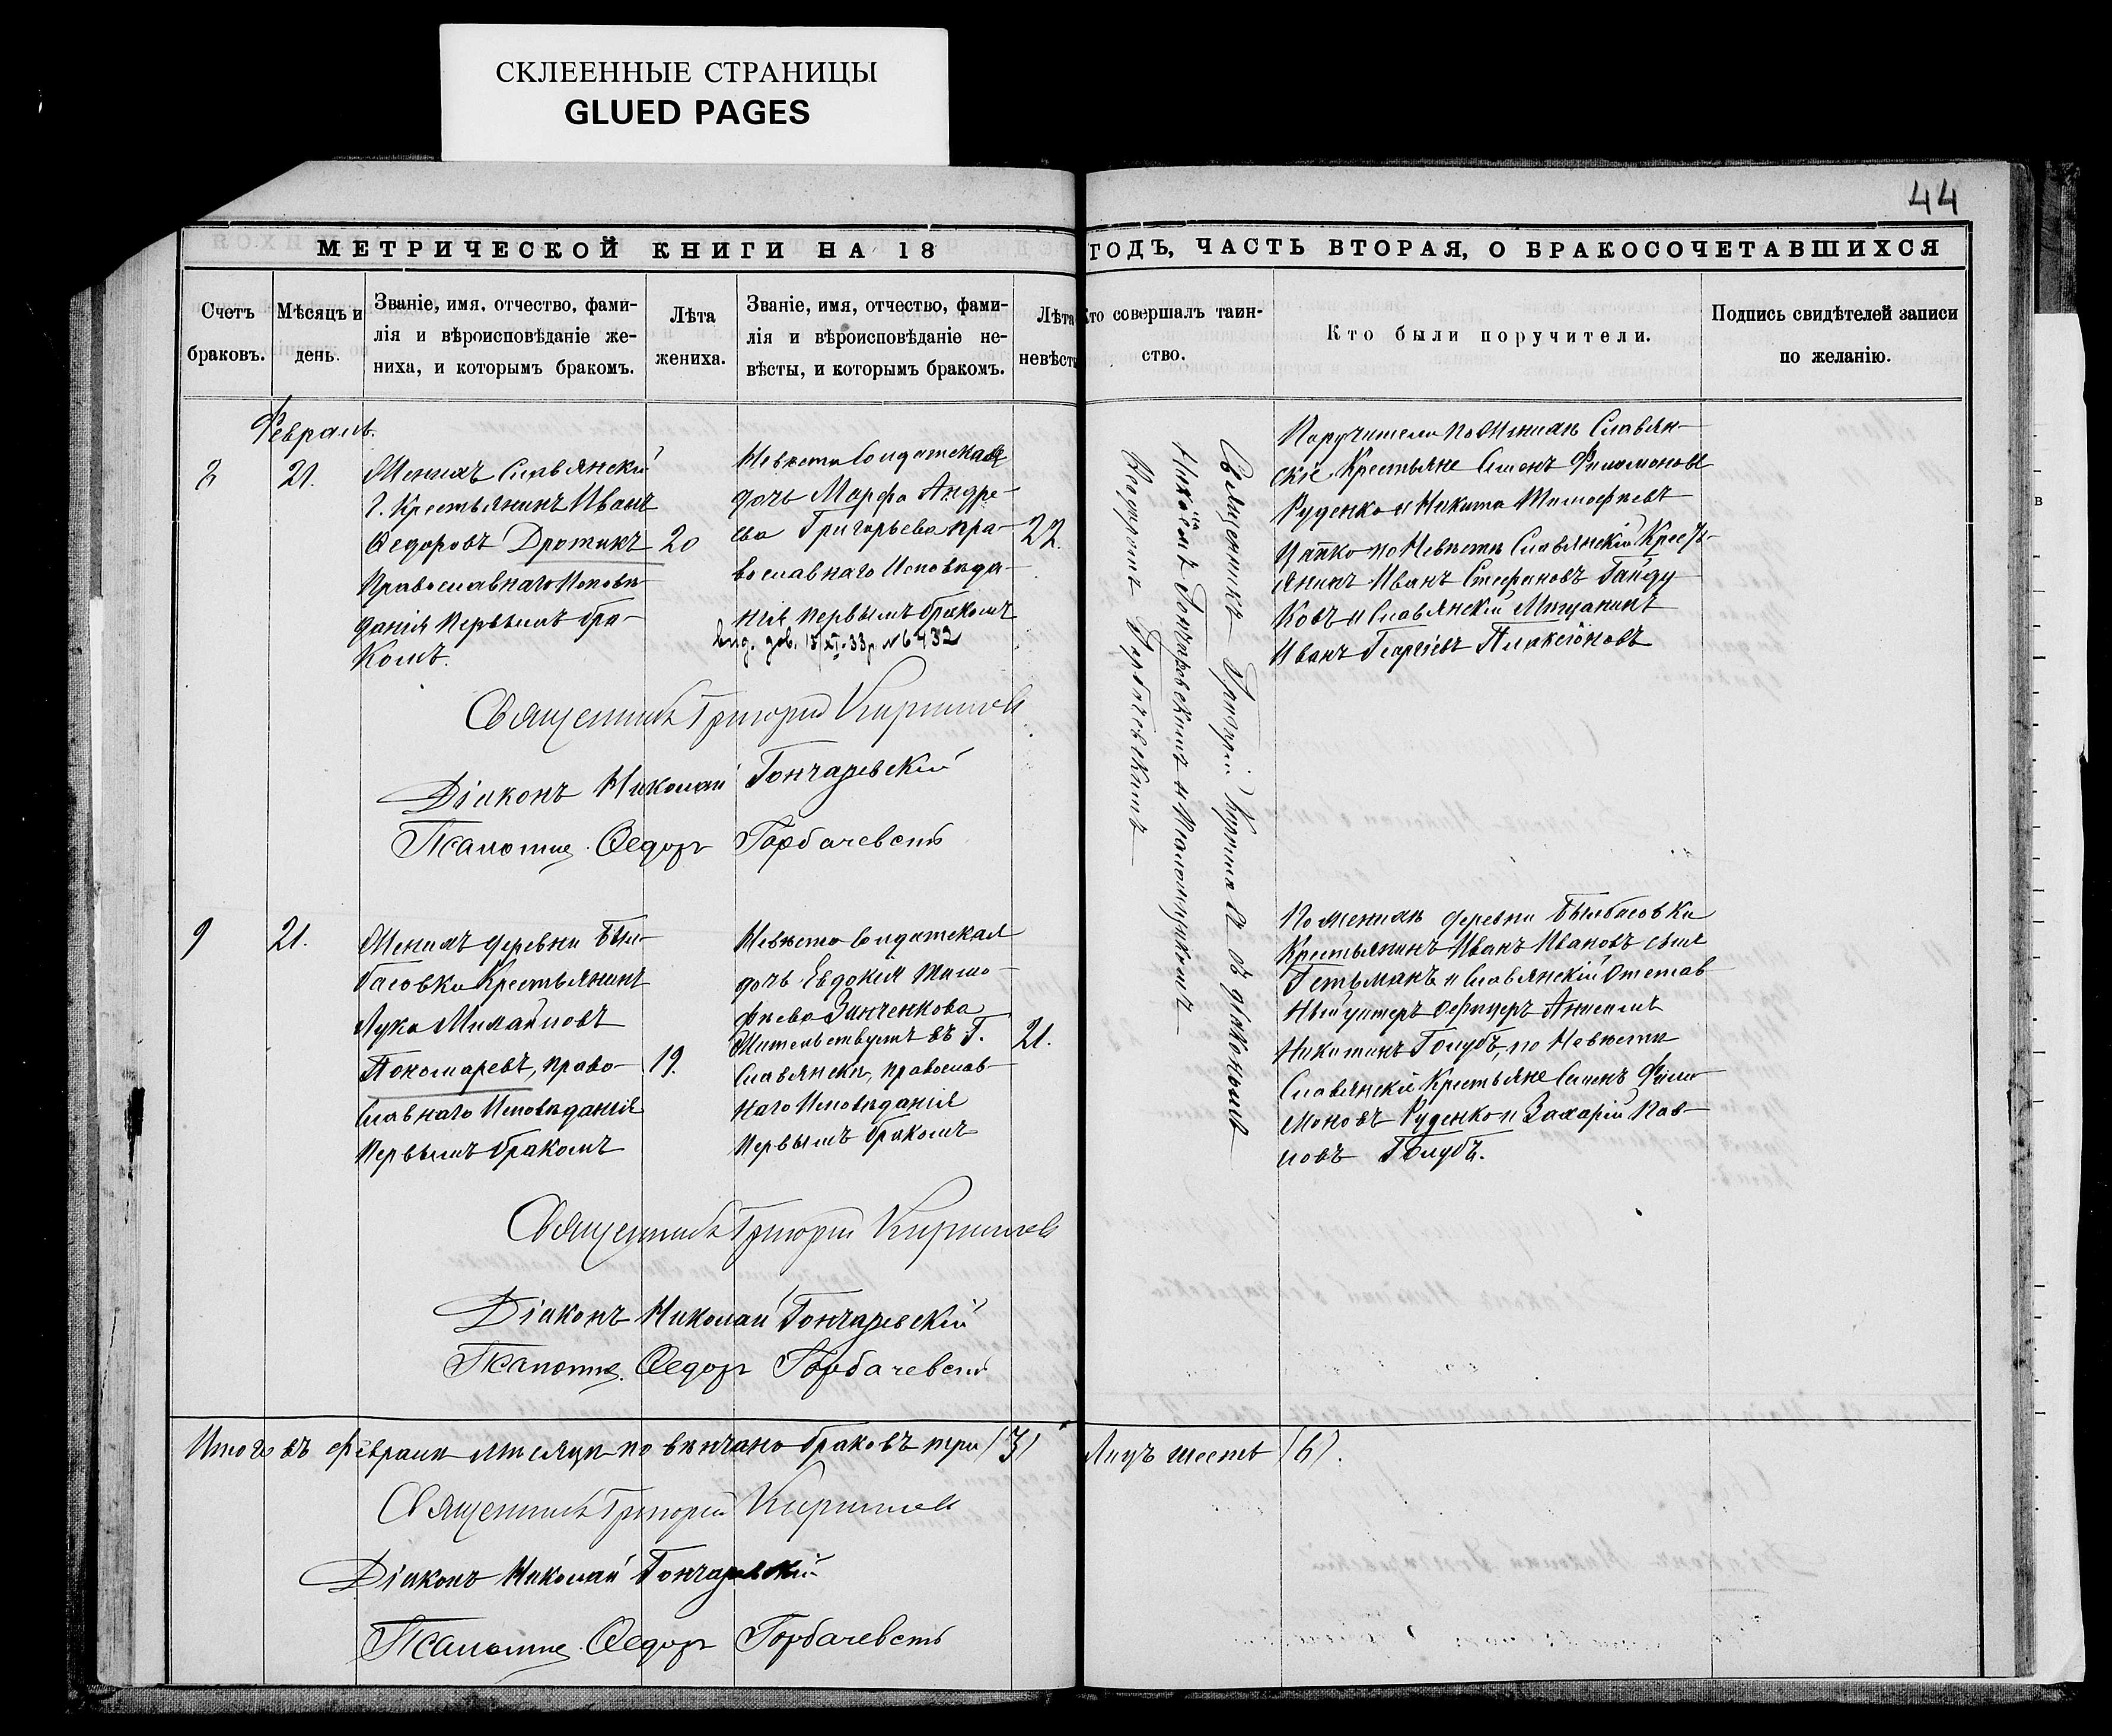 СКЛЕЕННЫЕ СТРАНИЦЫ
GLUED PAGES
44
МЕТРИЧЕСКОЙ КНИГИ НА 18
ГОДЪ, ЧАСТЬ ВТОРАЯ, О БРАКОСОЧЕТАВШИХСЯ
Счетъ
браковъ.
Мѣсяцъ и
день.
Званіе, имя, отчество, фами-
лія и вѣроисповѣданіе же-
ниха, и которымъ бракомъ.
Лѣта
жениха.
Званіе, имя, отчество, фами-
лія и вѣроисповѣданіе не-
вѣсты, и которымъ бракомъ.
Лѣта
невѣсты
Кто совершалъ таин-
ство.
Кто были поручители.
Подпись свидѣтелей записи
по желанію.
Февраль.
21.
Женихъ Славянскій
Г. Крестьянинъ Иванъ
Ѳедоровъ Дротикъ
Православнаго Исповѣ-
данія первымъ бра-
комъ.
20
Невѣста Солдатская
дочь Марфа Андре-
ева Григорьева пра-
вославнаго Исповѣда-
нія первымъ бракомъ
22.
Священникъ Григорій
Николаемъ Гончаревскимъ и Псаломщикомъ
Ѳедоромъ Горбачевскимъ
съ діакономъ
Поручители по Женихѣ Славян-
скіе Крестьяне Семенъ Филимоновъ
Руденко и Никита Тимофѣевъ
по Невѣстѣ Славянскій Кресть-
янинъ Иванъ Стефановъ Гайду
ковъ и Славянскій Мѣщанинъ
Иванъ Георгіевъ Плаксіоновъ
Священникъ Григорій
Діаконъ Николай Гончаревскій
Псаломщ. Ѳедоръ Горбачевскій
9
21.
Женихъ деревни Был-
басовки Крестьянинъ
Лука Михайловъ
Пономаревъ, право-
славнаго Исповѣданія
первымъ бракомъ
19.
Невѣста Солдатская
дочь Евдокія Тимо-
фѣева Занченкова
Жительствующ. въ Г.
Славянскѣ, православ-
наго Исповѣданія
первымъ бракомъ
21.
По Женихѣ деревни Былбасовки
Крестьянинъ Иванъ Ивановъ сынъ
Гетьманъ и Славянскій Отстав
ный унтеръ Офицеръ
Никитинъ Голубъ, по Невѣстѣ
Славянскіе Крестьяне Семенъ Фили
моновъ Руденко и Захарій Пав-
ловъ Голубъ.
Священникъ Григорій
Діаконъ Николай Гончаревскій
Псаломщ. Ѳедоръ Горбачевскій
Итого въ Февралѣ мѣсяцѣ повѣнчано браковъ три (3)
Лицъ шесть (6).
Священникъ Григорій
Діаконъ Николай Гончаревскій
Псаломщ. Ѳедоръ Горбачевскій